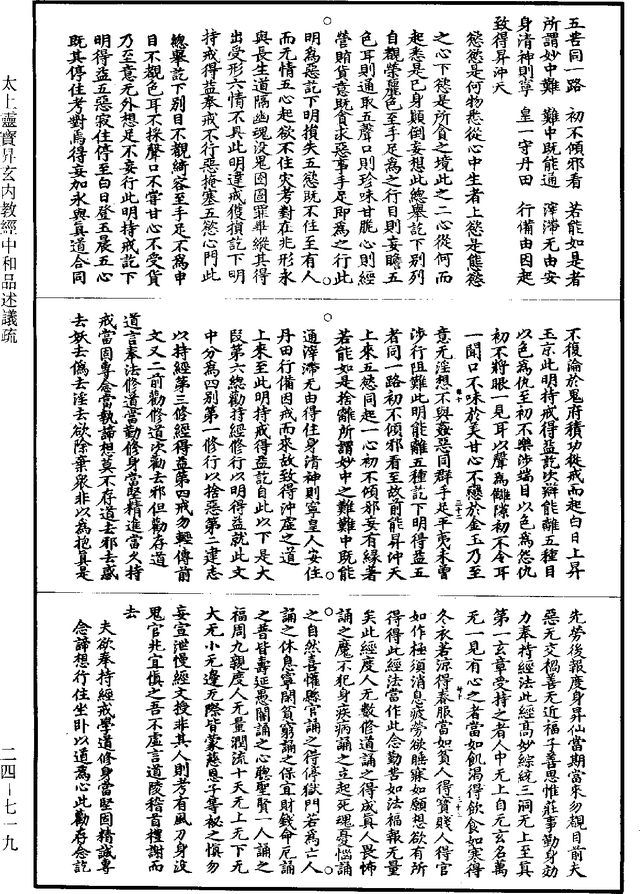 五苦同一路　初不傾邪看　若能如是者
所謂妙中難　難中既能通　滓滯无由安
身清神則寧　皇一守丹田　行備由因起
致得昇沖天
慾慾是何物悉從心中生者上慾是能慾
之心下慾是所貪之境此之二心從何而
起悉是已身顛倒妄想此總舉訖下別列
自觀榮麗色至手足為之行目則妄瞻五
色耳則通取五聲口則珍味甘脆心則經
營賄貨意既貪求惡事手足即為之行此
明為惡訖下明損失五慾既不住至有人
而无情五心起欲不住灾考對在兆形永
與長生道隔幽魂没鬼囹圄罪畢縱其得
出受形六情不具此明違戒獲損訖下明
持戒得益奉戒不行惡掩塞五慾心門此
總舉訖下別目不觀綺容至手足不為申
目不觀色耳不採聲口不甞甘心不受貨
乃至意无外想足不妄行此明持戒訖下
明得益五惡寂住停至白日登玉晨五心
既其停住考對焉得妄加永與真道合同
不復淪於鬼府積功從戒而起白日上昇
玉京此明持戒得益訖次辯能離五種目
以色為仇至初不樂涉端目以色為怨仇
初不將眼一見耳以聲為讎隙初不令耳
一聞口不味於美甘心不戀於金玉乃至
意无淫想不與姦惡同群手足平夷未曾
涉行阻難此明能離五種訖下明得益五
者同一路初不傾邪看至故前能昇沖天
上來五慾同起一心初不傾邪妄有緣著
若能如是捨離所謂妙中之難難中既能
通滓滯无由得住身清神則寧皇人安住
丹田行備因戒而來故致得沖虛之道
上來至此明持戒得益訖自此以下是大
段第六總勸持經修行以明得益就此文
中分為四別第一修行以捨惡第二建志
以持經第三修經得益第四戒勿輕傳前
文又二前勸修道次勸去邪但勸存道
道言奉法修道當勤修身當堅精進當久持
戒當固專念當執諦想莫不存道去邪去惑
去妖去偽去淫去欲除棄衆非以為抱真是
先勞後報度身昇仙當期當來勿覩目前夫
惡无交禍善无近福子善思惟莊事勤身効
力奉持經法此經高妙綜統三洞无上至真
第一玄章受持之者人中无上自元玄名萬
无一見有心之者當如飢渴得飲食如寒得
冬衣若涼得春服當如貧人得寶賤人得官
如作極須消息疲勞欲睡寐如願想欲有所
得得此經法當作此念勤苦如法福報无量
矣此經度人无數修道誦之得成真人畏怖
誦之魔不犯身疾病誦之立起死魂憂惱誦
之自然喜懽縣官誦之得停獄門若為亡人
誦之休息寧閑貧窮誦之保宜財錢命危誦
之普皆壽延愚闇誦之心聰聖賢一人誦之
福周九親度人无量潤流十天无上无下无
大无小无邊无際皆蒙慈恩子等祕之慎勿
妄宣泄慢經文授非其人則考有風刀身没
鬼官兆宜慎之吾不虛言道陵稽首禮謝而
去
夫欲奉持經戒學道修身當堅固精誠專
念諦想行住坐卧以道為心此勸存念訖
太上靈寶昇玄内教經中和品述議疏
二四—七一九